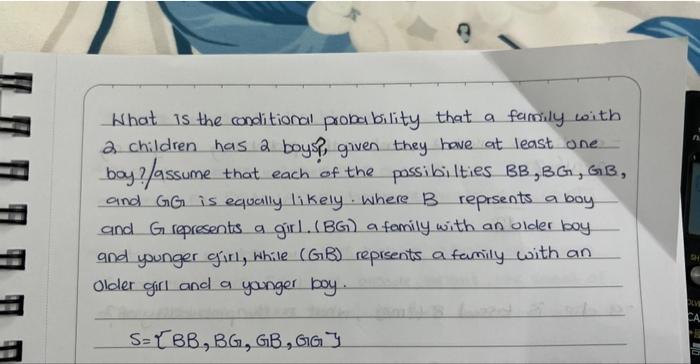 What is the conditional probability that a family with
2 children has 2 boys?, given they have at least one
boy?/assume that each of the possibilties BB, BG, GB,
and GG is equally likely. where B reprsents a boy
and G represents a girl. (BG) a family with an older boy
and younger girl, while (GB) reprsents a family with an
older girl and a younger boy.
S={BB, BG, GB, GG}